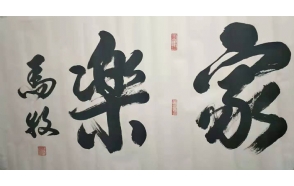 家樂
馬牧